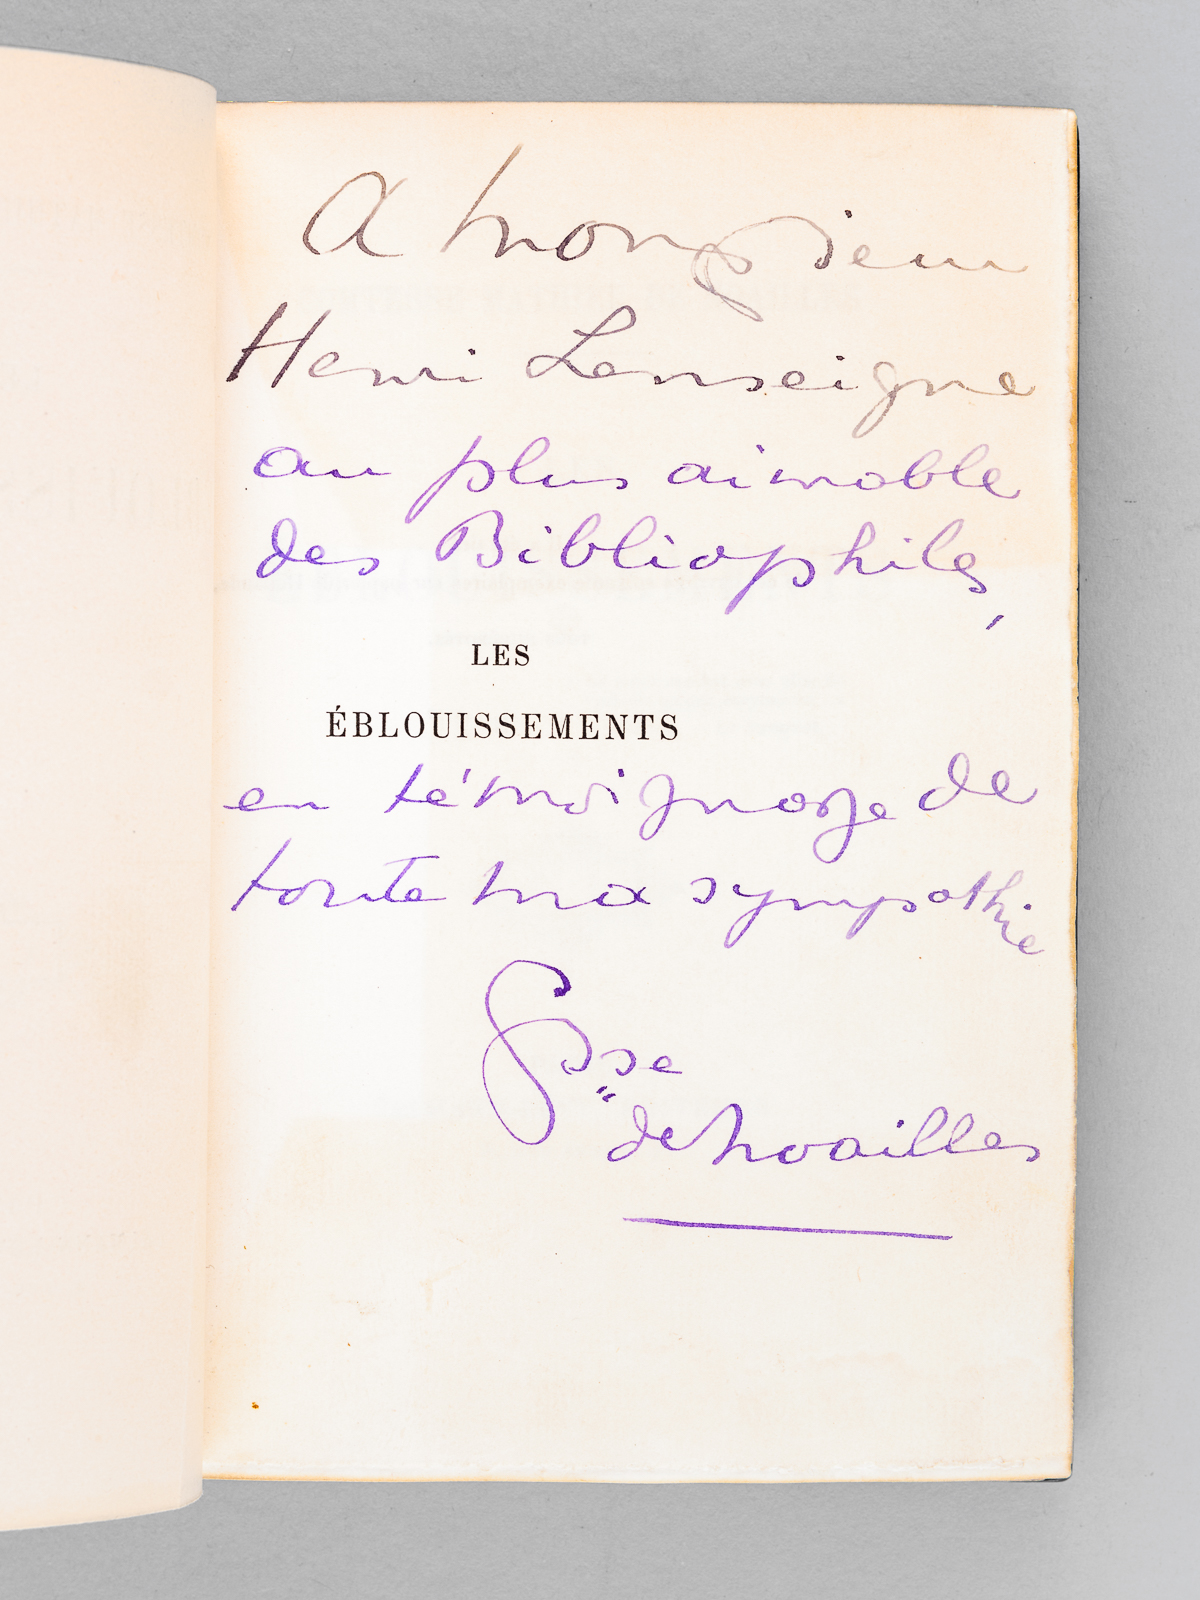 A Monsieur
Henri Lenseigne
au plus aimable
des Bibliophiles,
LES
ÉBLOUISSEMENTS
en témoignage de
toute ma sympathie
Csse
de Noailles